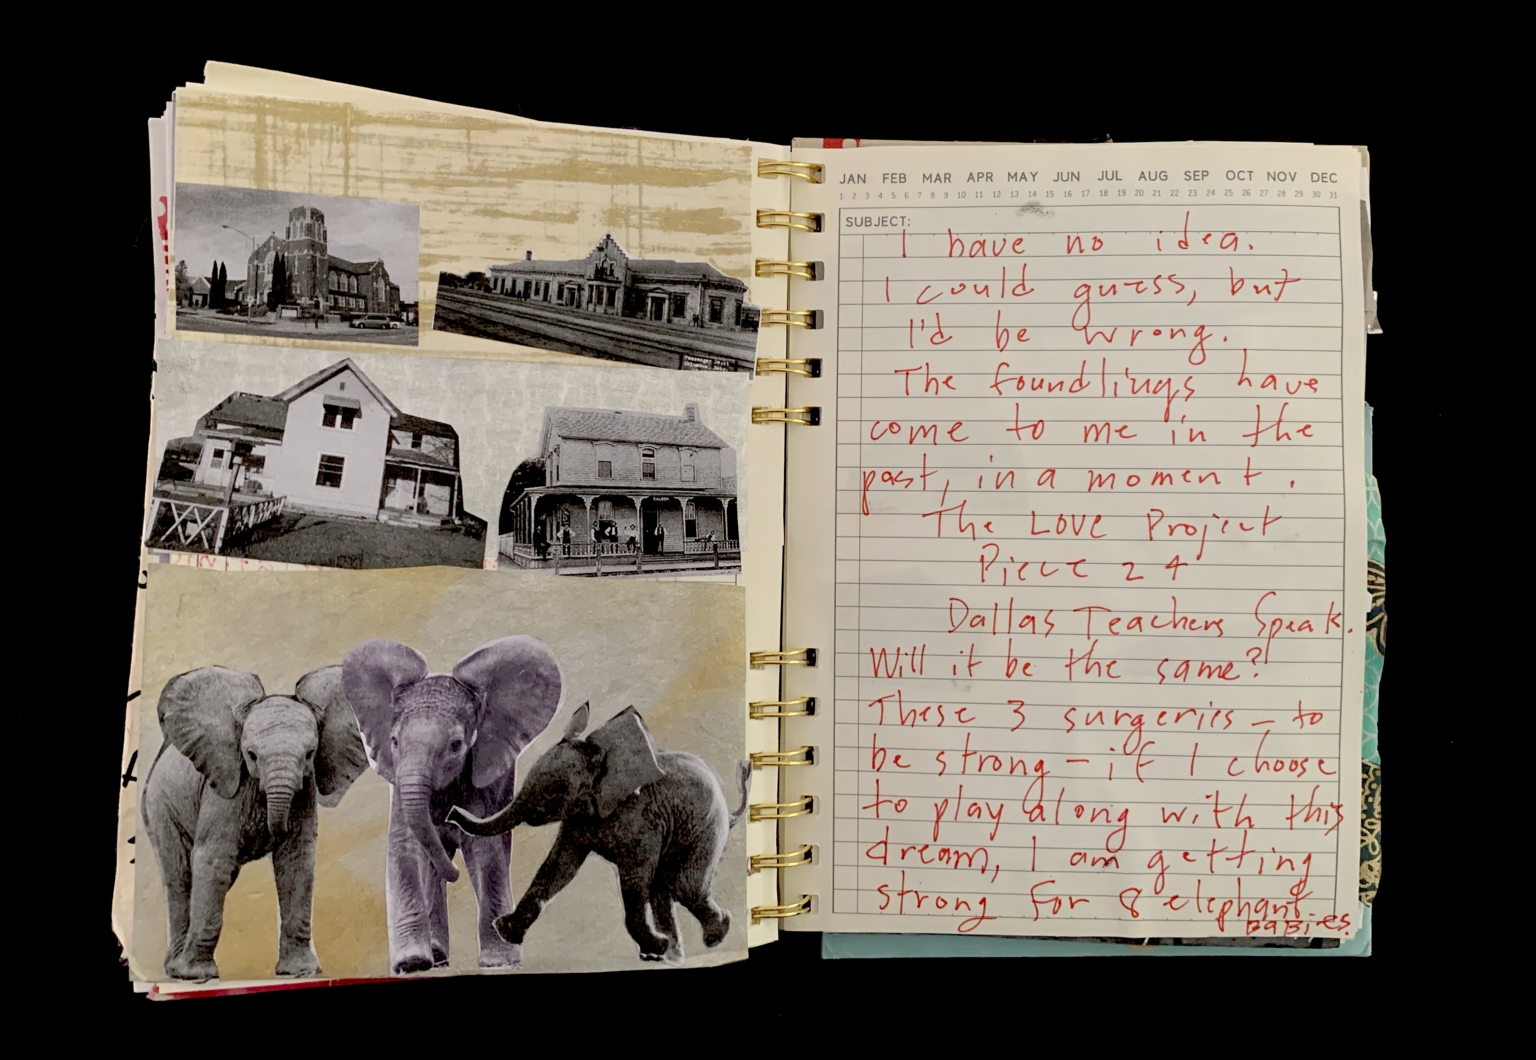 SALOON
JAN FEB MAR APR MAY JUN JUL AUG SEP OCT NOV DEC
1 2 3 4 5 6 7 8 9 10 11 12 13 14 15 16 17 18 19 20 21 22 23 24 25 26 27 28 29 30 31
SUBJECT:
I have no idea.
I could guess, but
I'd be wrong.
The foundlings have
come to me in the
past, in a moment.
The Love Project
Piece 24
Dallas Teachers Speak.
Will it be the same?
These 3 surgeries – to
be strong – if I choose
to play along with this
dream, I am getting
strong for 8 elephant
BaBies.